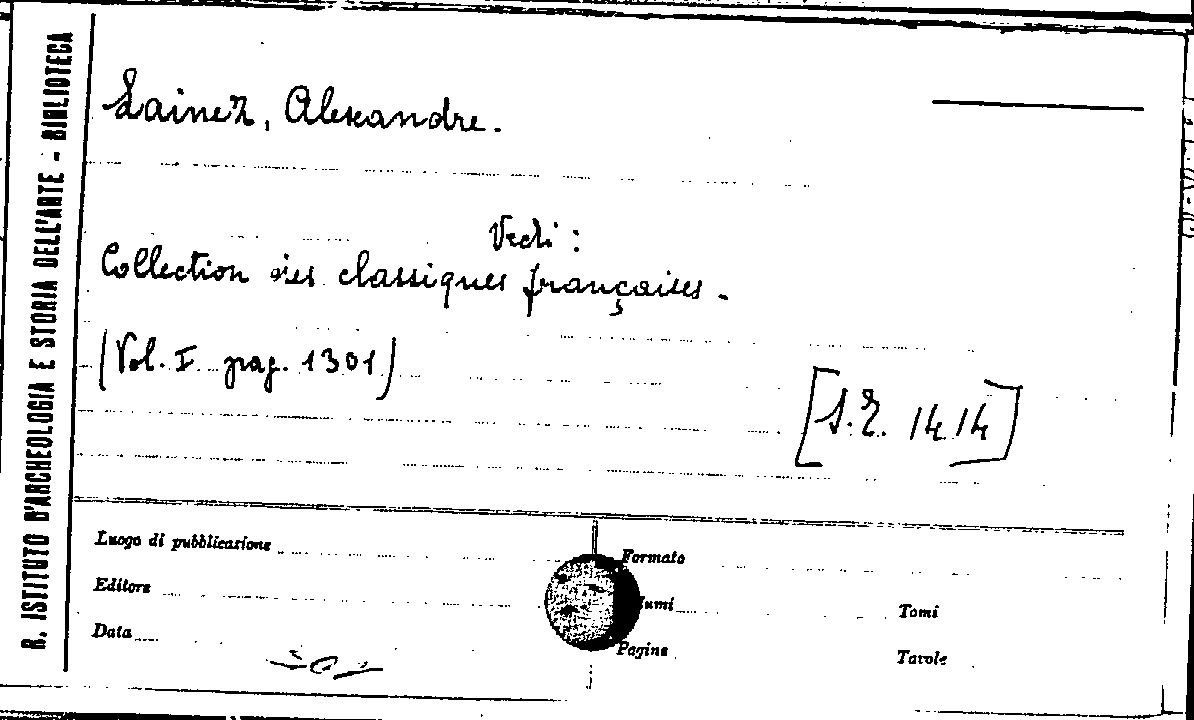 R. ISTITUTO D'ARCHEOLOGIA E STORIA DELL'ARTE - BIBLIOTECA
Lainez, Alexandre.
Vedi:
Collection des classiques françaises.
(Vol. I pag. 1301)
[S.R. 14/4]
Luogo di pubblicazione
Formato
Editore
umi
Tomi
Data
Pagine
Tavole